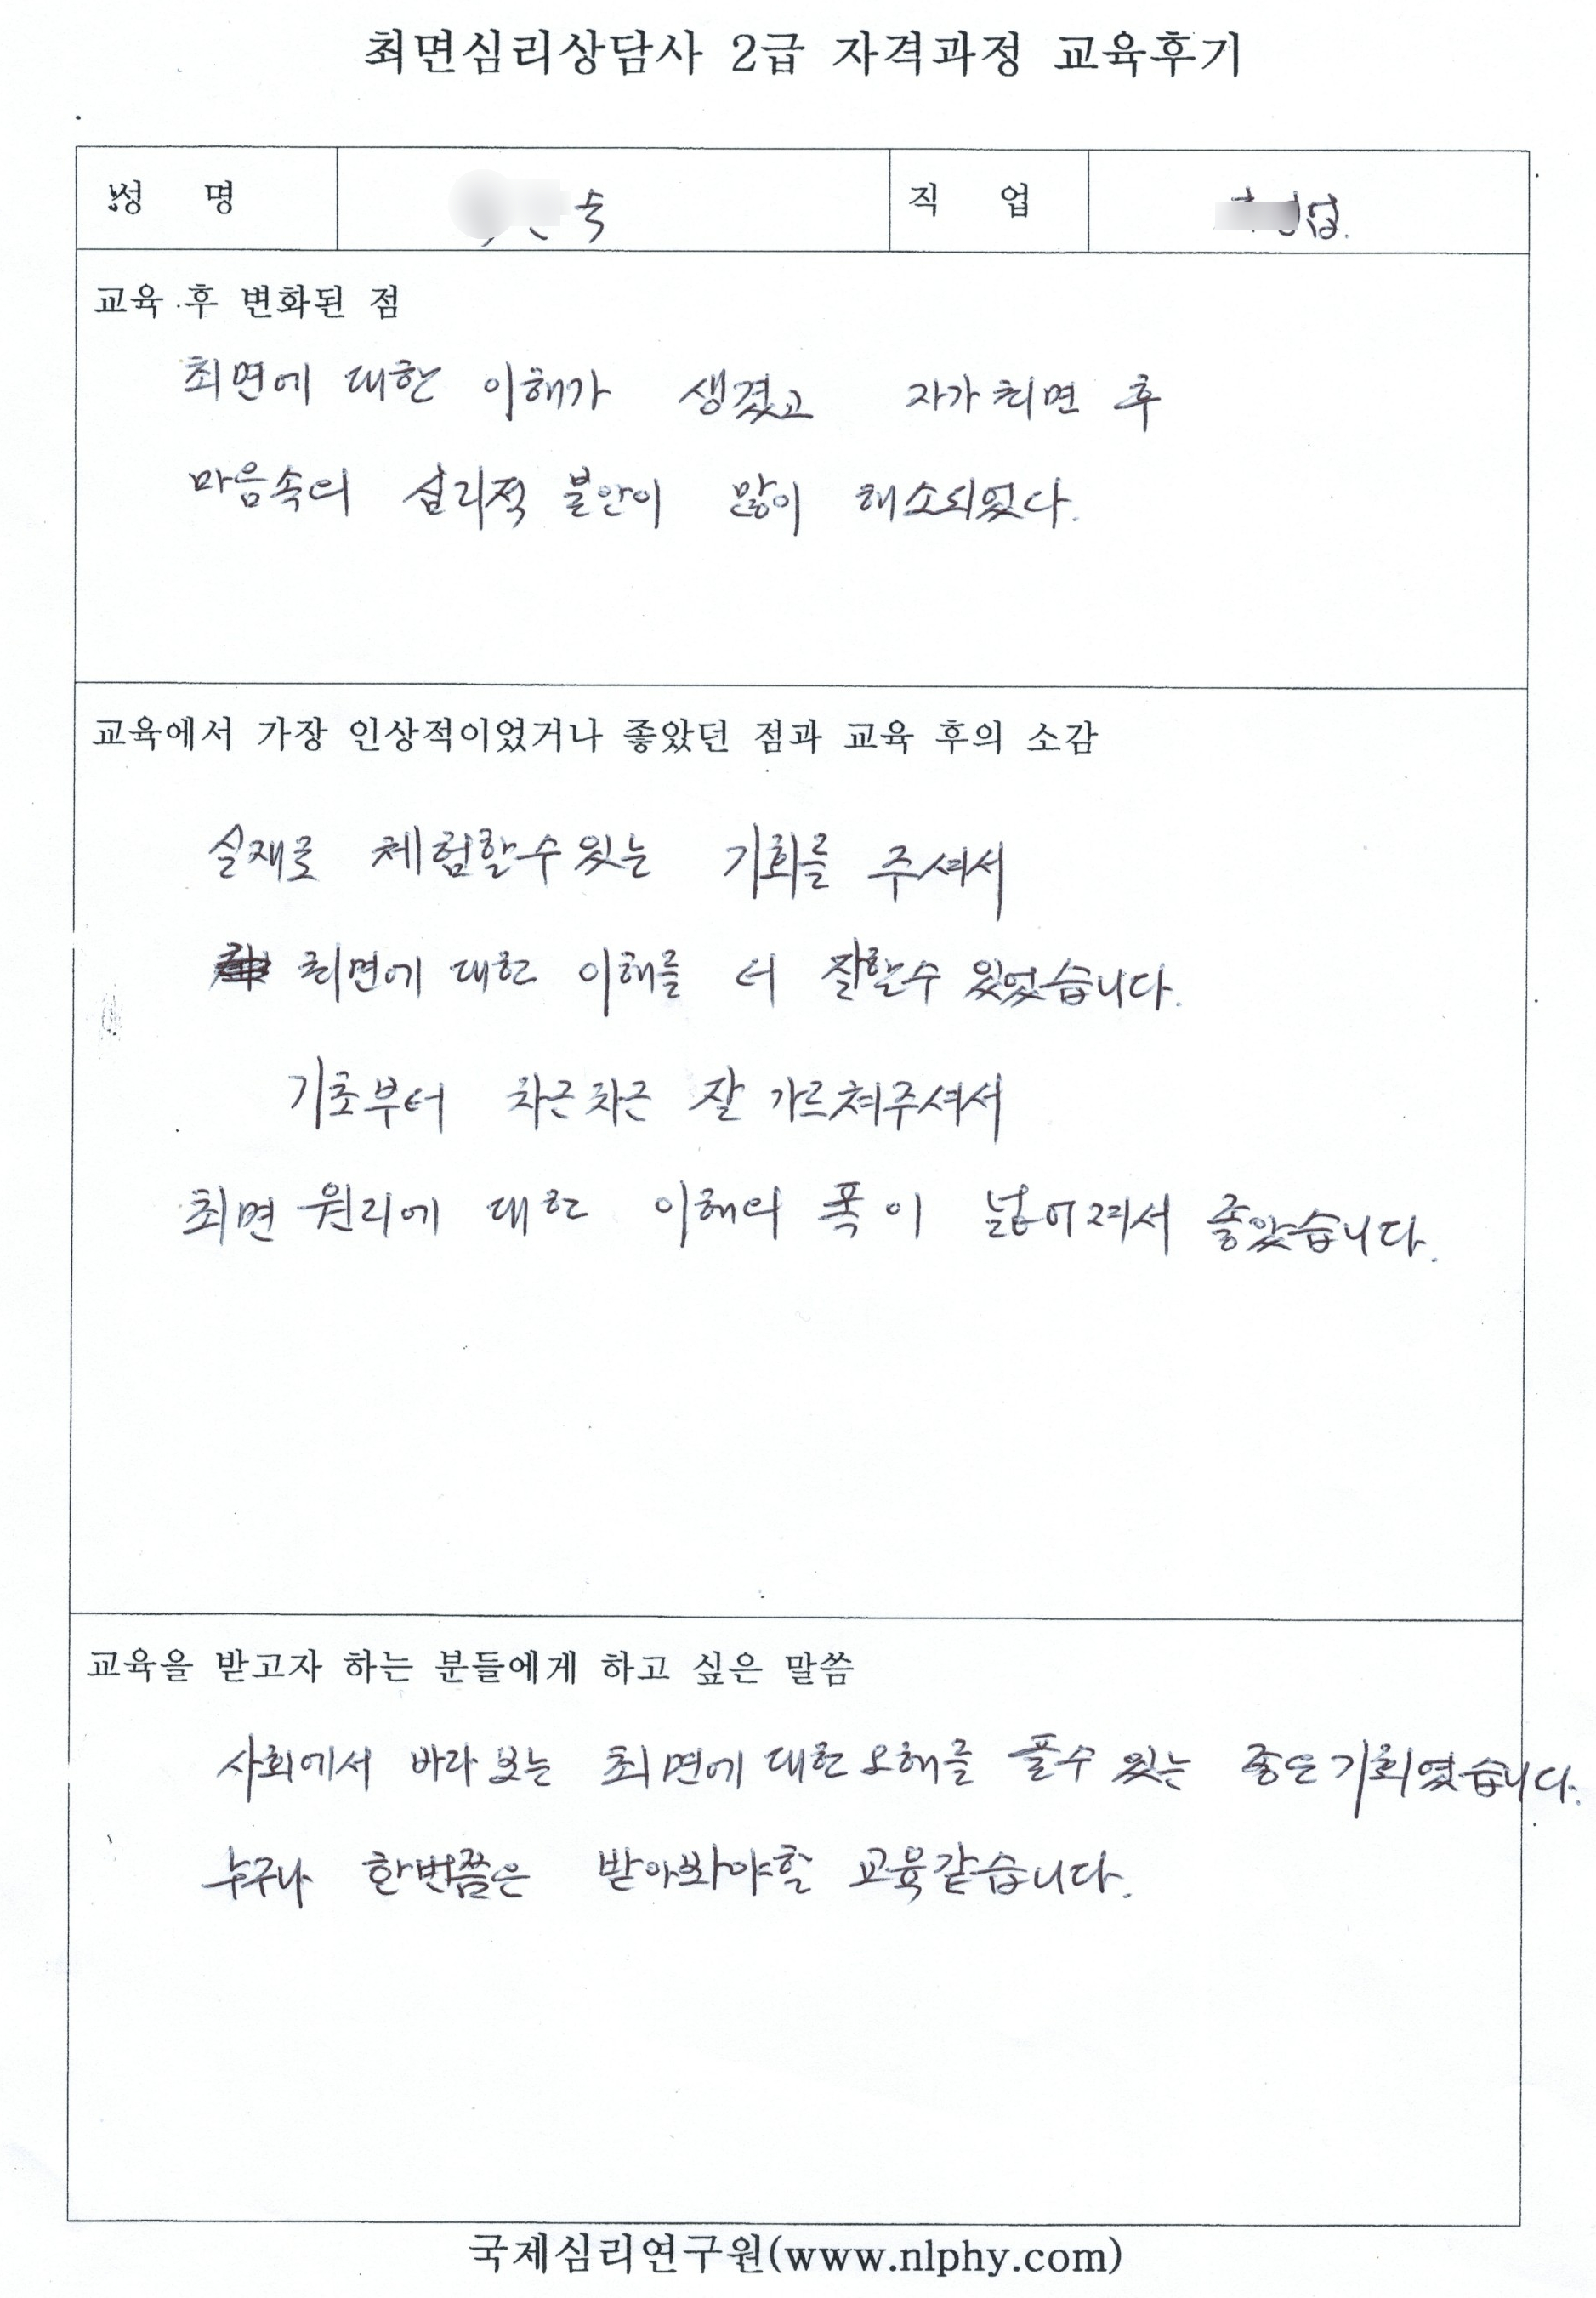 최면심리상담사 2급 자격과정 교육후기
성 명 숙 직 업 업.
교육 후 변화된 점
최면에 대한 이해가 생겼고 자가최면 후
마음속의 심리적 불안이 많이 해소되었다.
교육에서 가장 인상적이었거나 좋았던 점과 교육 후의 소감
실재로 체험할수있는 기회를 주셔서
최면에 대한 이해를 더 잘할수 있었습니다.
기초부터 차근차근 잘 가르쳐주셔서
최면 원리에 대한 이해의 폭이 넓어져서 좋았습니다.
교육을 받고자 하는 분들에게 하고 싶은 말씀
사회에서 바라보는 최면에 대한 오해를 풀수 있는 좋은 기회였습니다.
누구나 한번쯤은 받아봐야할 교육같습니다.
국제심리연구원(www.nlphy.com)